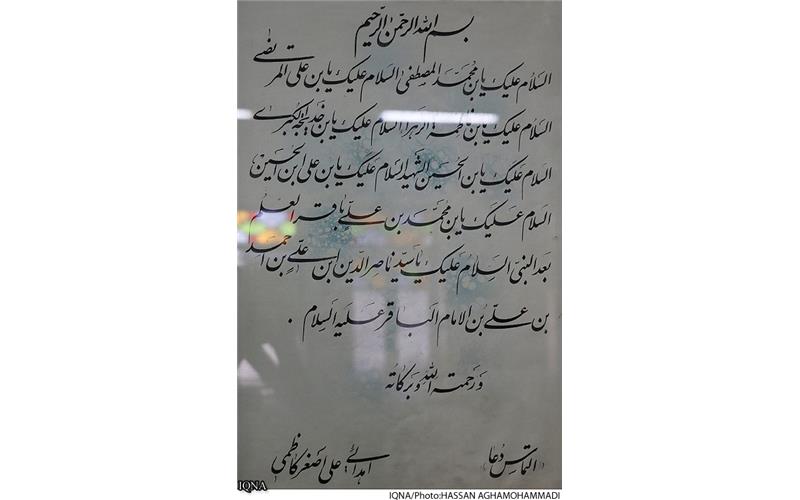 بسم الله الرحمن الرحیم
السلام علیک یابن محمد المصطفی السلام علیک یابن علی المرتضی
السلام علیک یابن فاطمة الزهراء السلام علیک یابن خدیجة الکبری
السلام علیک یابن الحسین الشهید السلام علیک یابن علی ابن الحسین
السلام علیک یابن محمد بن علی باقر العلم
بعد النبی السلام علیک یا سید ناصر الدین ابن علی بن احمد
بن علی بن الامام الباقر علیه السلام .
و رحمته الله و برکاته
التماس دعا
اهدائی علی اصغر کاظمی
IQNA
IQNA/Photo:HASSAN AGHAMOHAMMADI